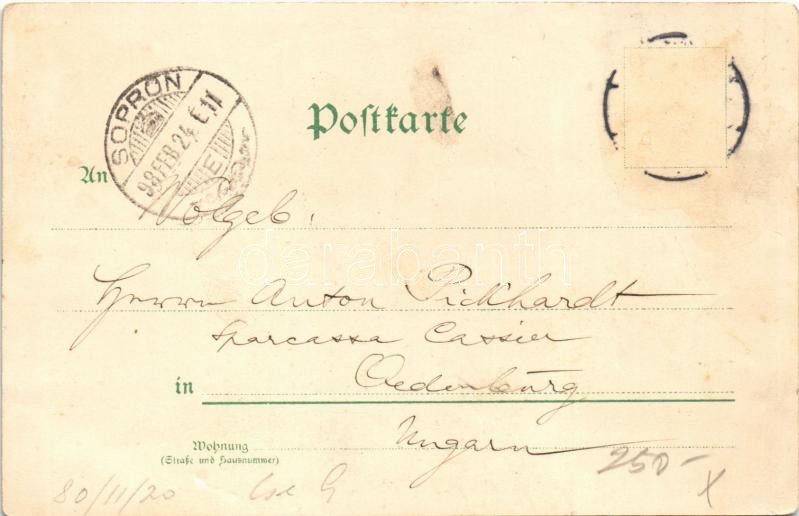 SOPRON
98 FEB 24 E 11
Postkarte
An
Wolgeb.
Herrn Anton Pickhardt
Sparcassa Cassier
in Oedenburg
Wohnung Ungarn
(Straße und Hausnummer)
250-
X
80/11/20
darabanth